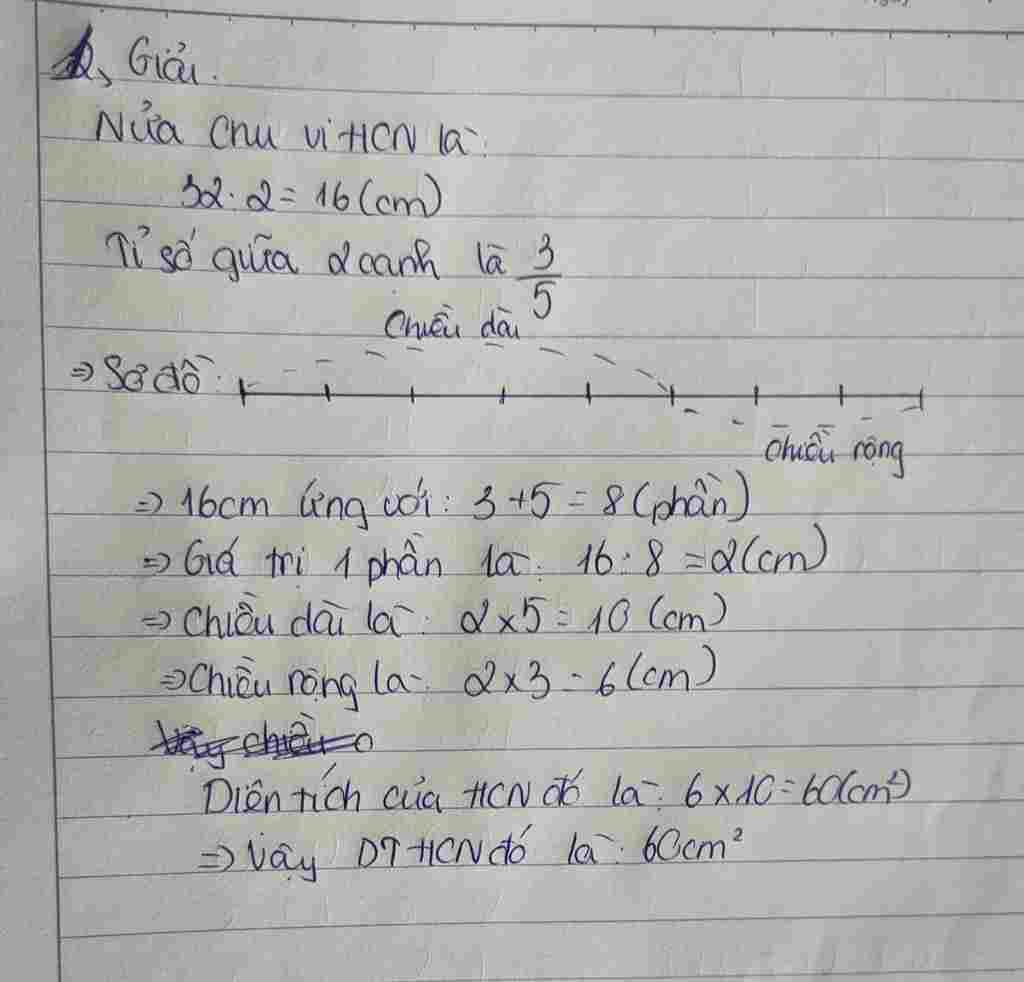 2, Giải.
Nửa chu vi HCN là:
32 : 2 = 16 (cm)
Tỉ số giữa 2 cạnh là 3/5
Chiều dài
⇒ Sơ đồ:
Chiều rộng
⇒ 16cm ứng với: 3 + 5 = 8 (phần)
⇒ Giá trị 1 phần là: 16 : 8 = 2 (cm)
⇒ Chiều dài là: 2 x 5 = 10 (cm)
⇒ Chiều rộng là: 2 x 3 = 6 (cm)
Diện tích của HCN đó là: 6 x 10 = 60 (cm²)
⇒ Vậy DT HCN đó là: 60cm²